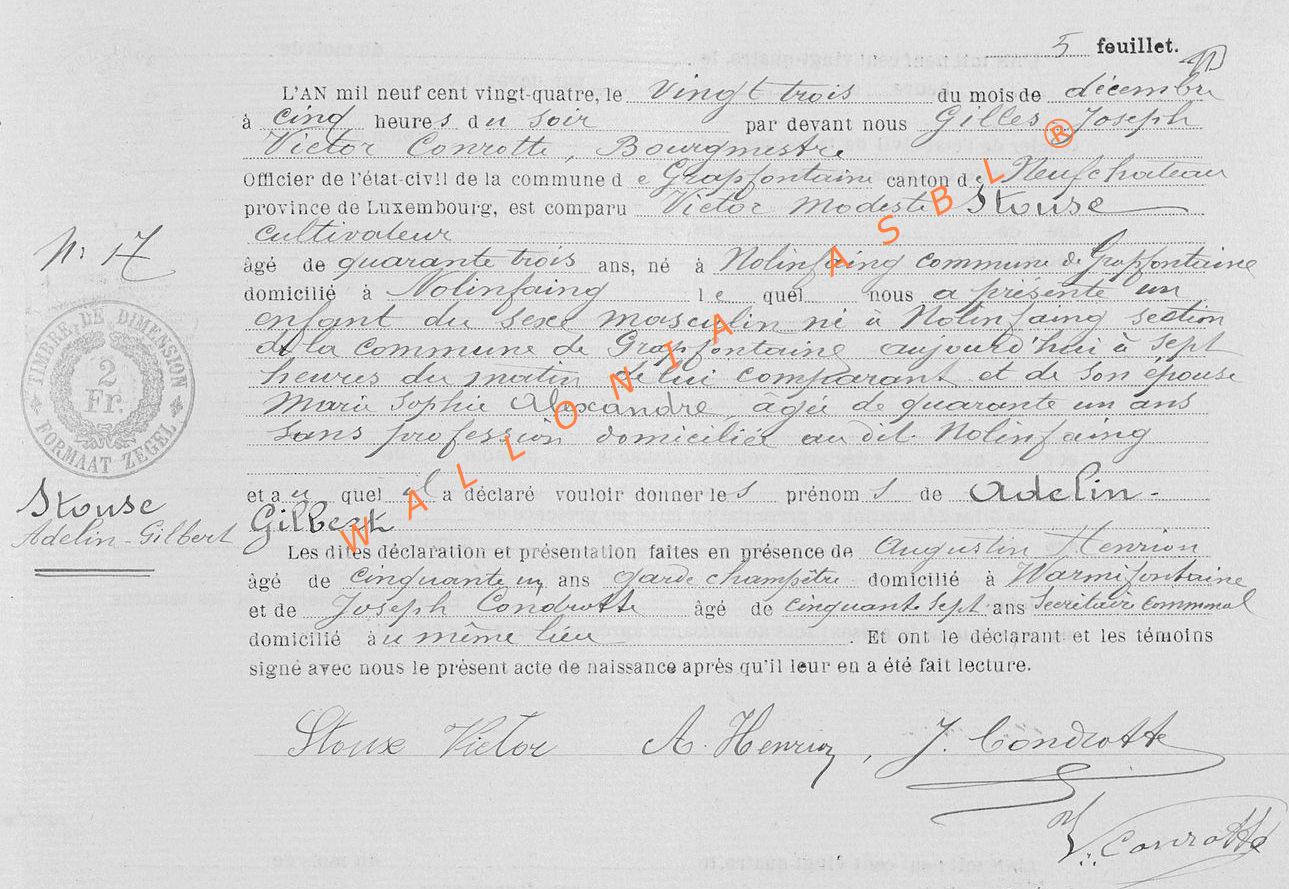 5 feuillet.
L'AN mil neuf cent vingt-quatre, le vingt trois du mois de décembre
à cinq heures du soir par devant nous Gilles Joseph
Victor Conrotte, Bourgmestre
Officier de l'état-civil de la commune de Grapfontaine canton de Neufchateau
province de Luxembourg, est comparu Victor Modeste Stouse
cultivateur
N: 17
âgé de quarante trois ans, né à Nolinfaing commune de Grapfontaine
domicilié à Nolinfaing lequel nous a présenté un
enfant du sexe masculin né à Nolinfaing section
de la commune de Grapfontaine aujourd'hui à sept
heures du matin de lui comparant et de son épouse
Marie Sophie Alexandre, âgée de quarante un ans
sans profession domiciliée au dit Nolinfaing
TIMBRE DE DIMENSION
2
Fr.
FORMAAT ZEGEL
et au quel il a déclaré vouloir donner les prénoms de Adelin-
Gilbert
Stouse
Adelin-Gilbert
Les dites déclaration et présentation faites en présence de Augustin Henrion
âgé de cinquante un ans garde champêtre domicilié à Warmifontaine
et de Joseph Condrotte âgé de cinquante sept ans Secrétaire communal
domicilié au même lieu. Et ont le déclarant et les témoins
signé avec nous le présent acte de naissance après qu'il leur en a été fait lecture.
Stouse Victor A. Henrion, J. Condrotte
V. Conrotte
WALLONIA ASBL ®